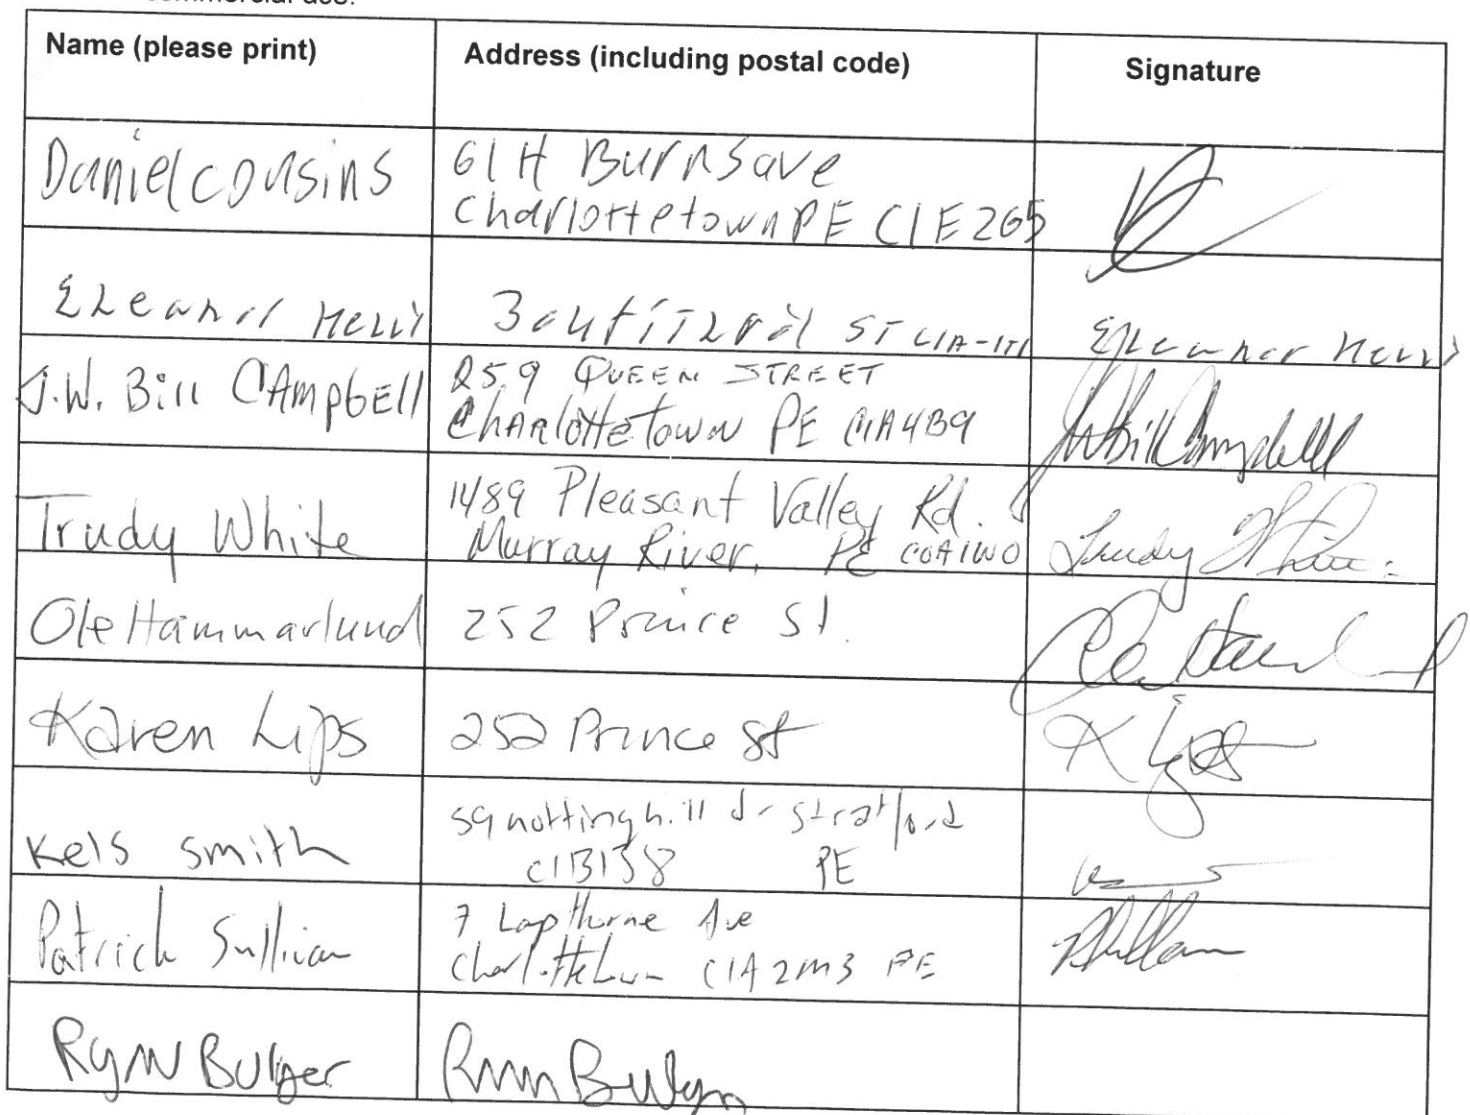 commercial use.
Name (please print) Address (including postal code) Signature
Daniel cousins 61 H Burns ave
Charlottetown PE C1E 2G5
Eleanor ST C1A-1T1 Eleanor
J.W. Bill CAmpbEll 259 QUEEN STREET
ChARlotteTown PE C1A4B9 JW Bill Campbell
Trudy White 1489 Pleasant Valley Rd.
Murray River, PE C0A1W0 Trudy White
Ole Hammarlund 252 Prince St.
Karen Lips 252 Prince St K Lips
Kels smith 59 nottinghill dr stratford
C1B1J8 PE
Patrick Sullivan 7 Lapthorne Ave
Charlottetown C1A 2M3 PE
Ryan Bulger